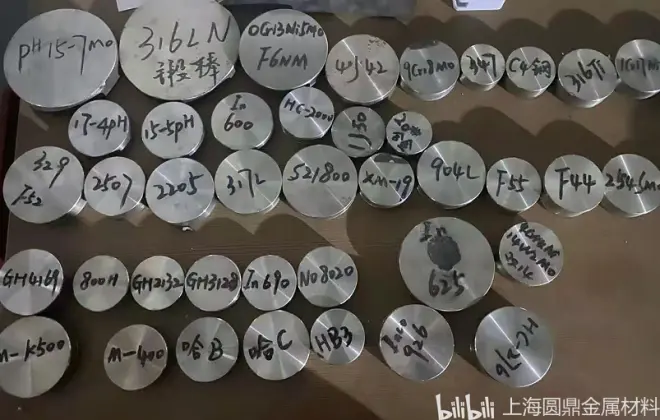 pH15-7Mo
316LN
锻棒
0G13Ni5Mo
F6NM
4J42
9G18Mo
347
C4钢
316Ti
17-4pH
15-5pH
In
600
HC-2000
1J50
329
F52
2507
2205
317L
S21800
xm-19
904L
F55
F44
254SMo
GH4169
800H
GH2132
GH3128
In690
N08020
In
625
M-K500
M-400
哈B
哈C
HB3
926
HC-276
bilibili 上海圆鼎金属材料